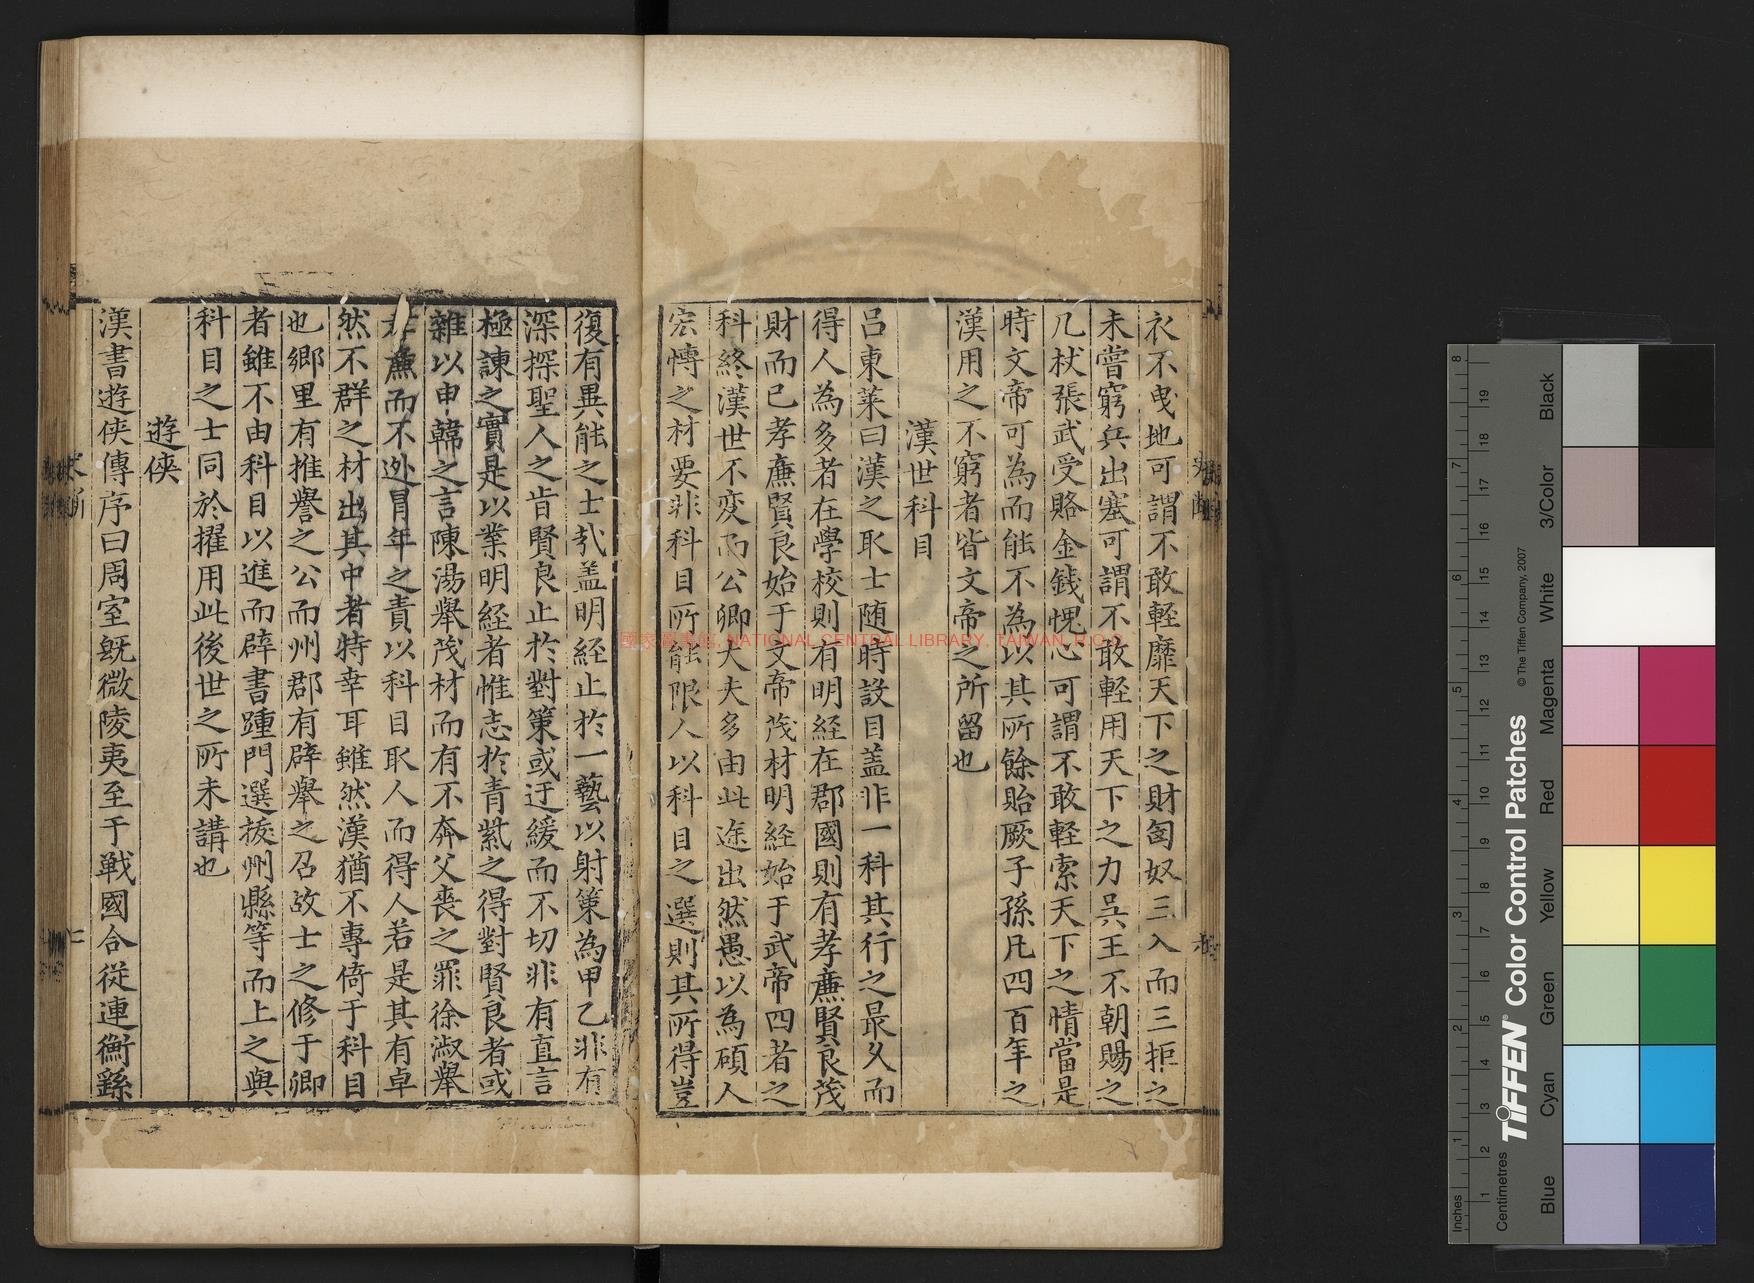 衣不曳地可謂不敢輕靡天下之財匈奴三入而三拒之
未嘗窮兵出塞可謂不敢輕用天下之力吳王不朝賜之
几杖張武受賂金錢愧心可謂不敢輕索天下之情當是
時文帝可為而能不為以其所餘貽厥子孫凡四百年之
漢用之不窮者皆文帝之所留也
漢世科目
呂東萊曰漢之取士随時設目盖非一科其行之最久而
得人為多者在學校則有明經在郡國則有孝廉賢良茂
財而已孝廉賢良始于文帝茂材明經始于武帝四者之
科終漢世不変而公卿大夫多由此途出然愚以為碩人
宏慱之材要非科目所能限人以科目之選則其所得豈
復有異能之士㢤盖明經止於一藝以射策為甲乙非有
深探聖人之㫖賢良止於對策或迂緩而不切非有直言
極諫之實是以業明經者惟志於青紫之得對賢良者或
雜以申韓之言陳湯舉茂材而有不奔父喪之罪徐淑舉
孝廉而不迯冒年之責以科目取人而得人若是其有卓
然不群之材出其中者特幸耳雖然漢猶不專倚于科目
也鄉里有推譽之公而州郡有辟舉之召故士之修于鄉
者雖不由科目以進而辟書踵門選掞州縣等而上之與
科目之士同於擢用此後世之所未講也
遊俠
漢書遊俠傳序曰周室既微陵夷至于戰國合從連衡繇
國家圖書館, NATIONAL CENTRAL LIBRARY, TAIWAN, R.O.C.
Inches
Centimetres
1 2 3 4 5 6 7 8
1 2 3 4 5 6 7 8 9 10 11 12 13 14 15 16 17 18 19
TIFFEN® Color Control Patches
© The Tiffen Company, 2007
Blue
Cyan
Green
Yellow
Red
Magenta
White
3/Color
Black